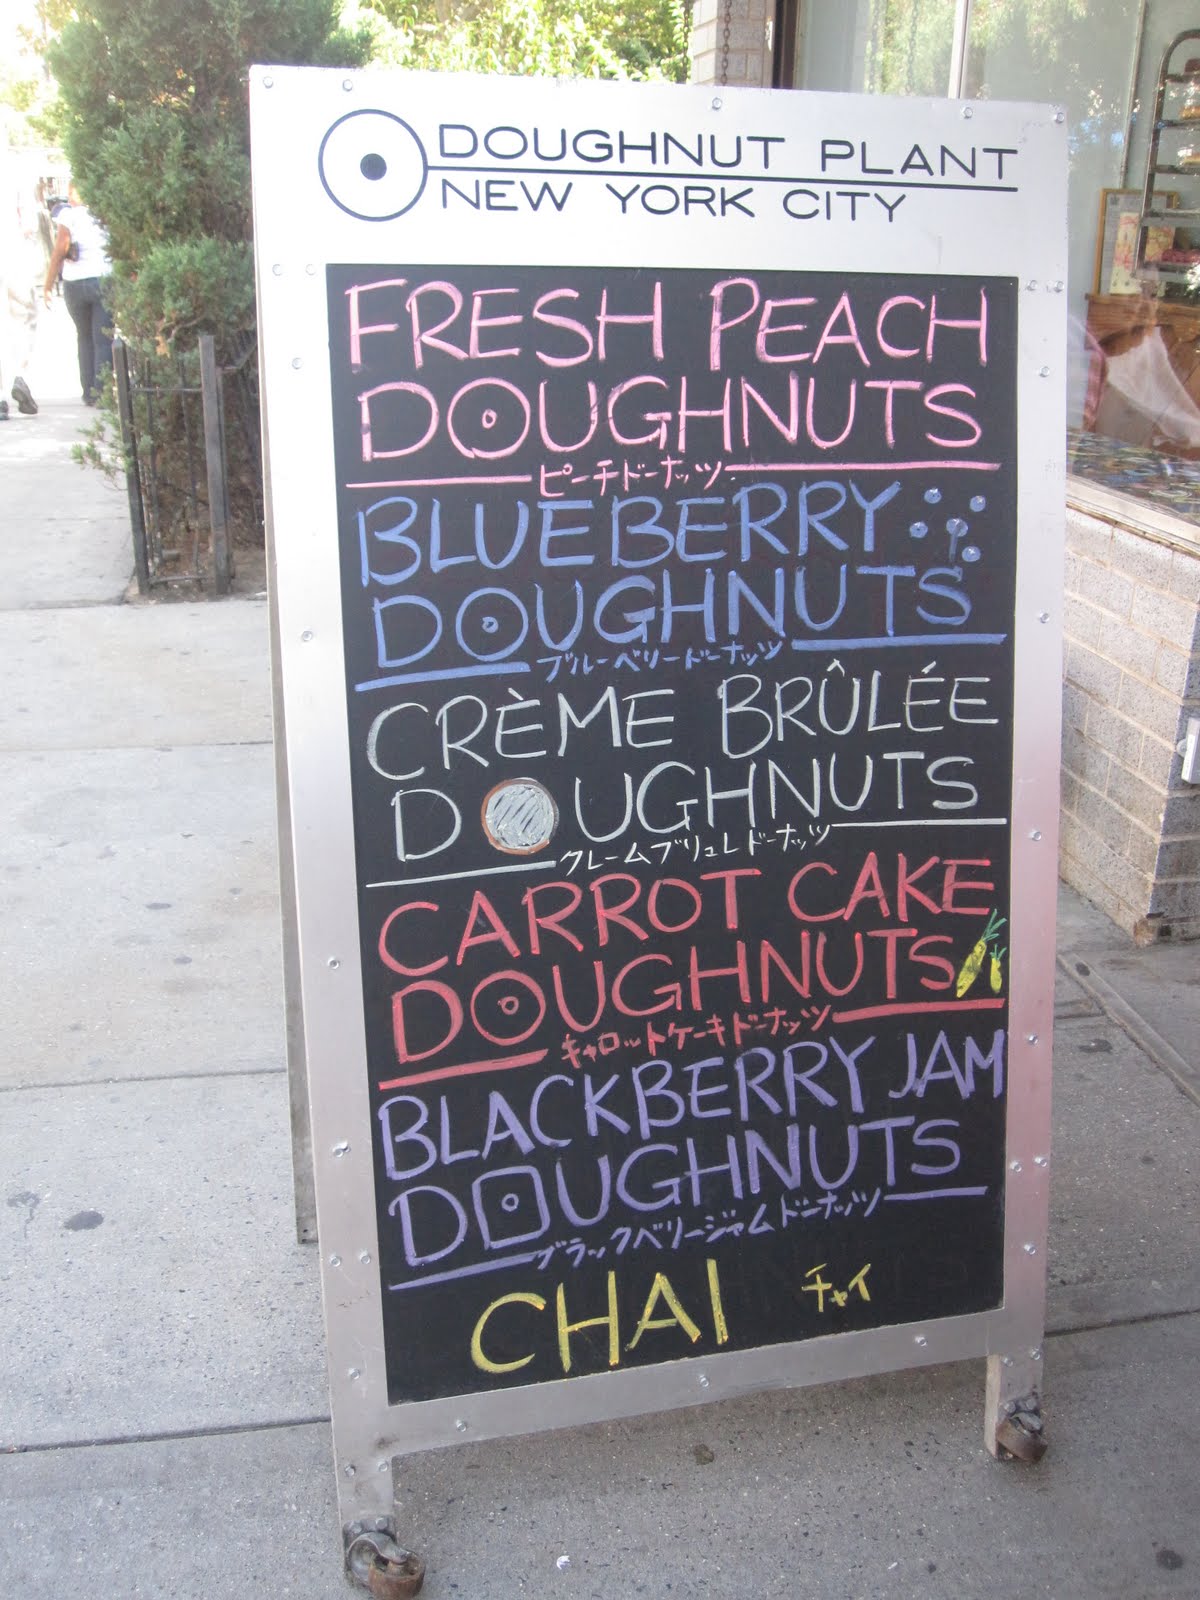 DOUGHNUT PLANT
NEW YORK CITY
FRESH PEACH
DOUGHNUTS
ピーチドーナッツ
BLUEBERRY
DOUGHNUTS
ブルーベリードーナッツ
CRÈME BRÛLÉE
DOUGHNUTS
クレームブリュレドーナッツ
CARROT CAKE
DOUGHNUTS
キャロットケーキドーナッツ
BLACKBERRY JAM
DOUGHNUTS
ブラックベリージャムドーナッツ
CHAI チャイ